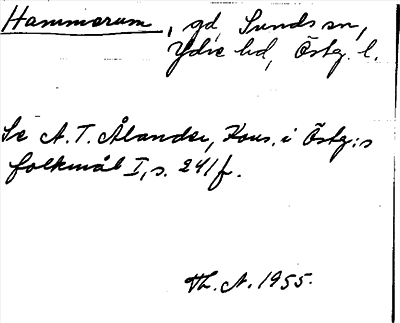 Hammarum, gd, Sunds sn,
Ydre hd, Östg. l.
Se A. T. Ålander, Kons. i Östg:s
folkmål I, s. 241 f.
Th. A. 1955.